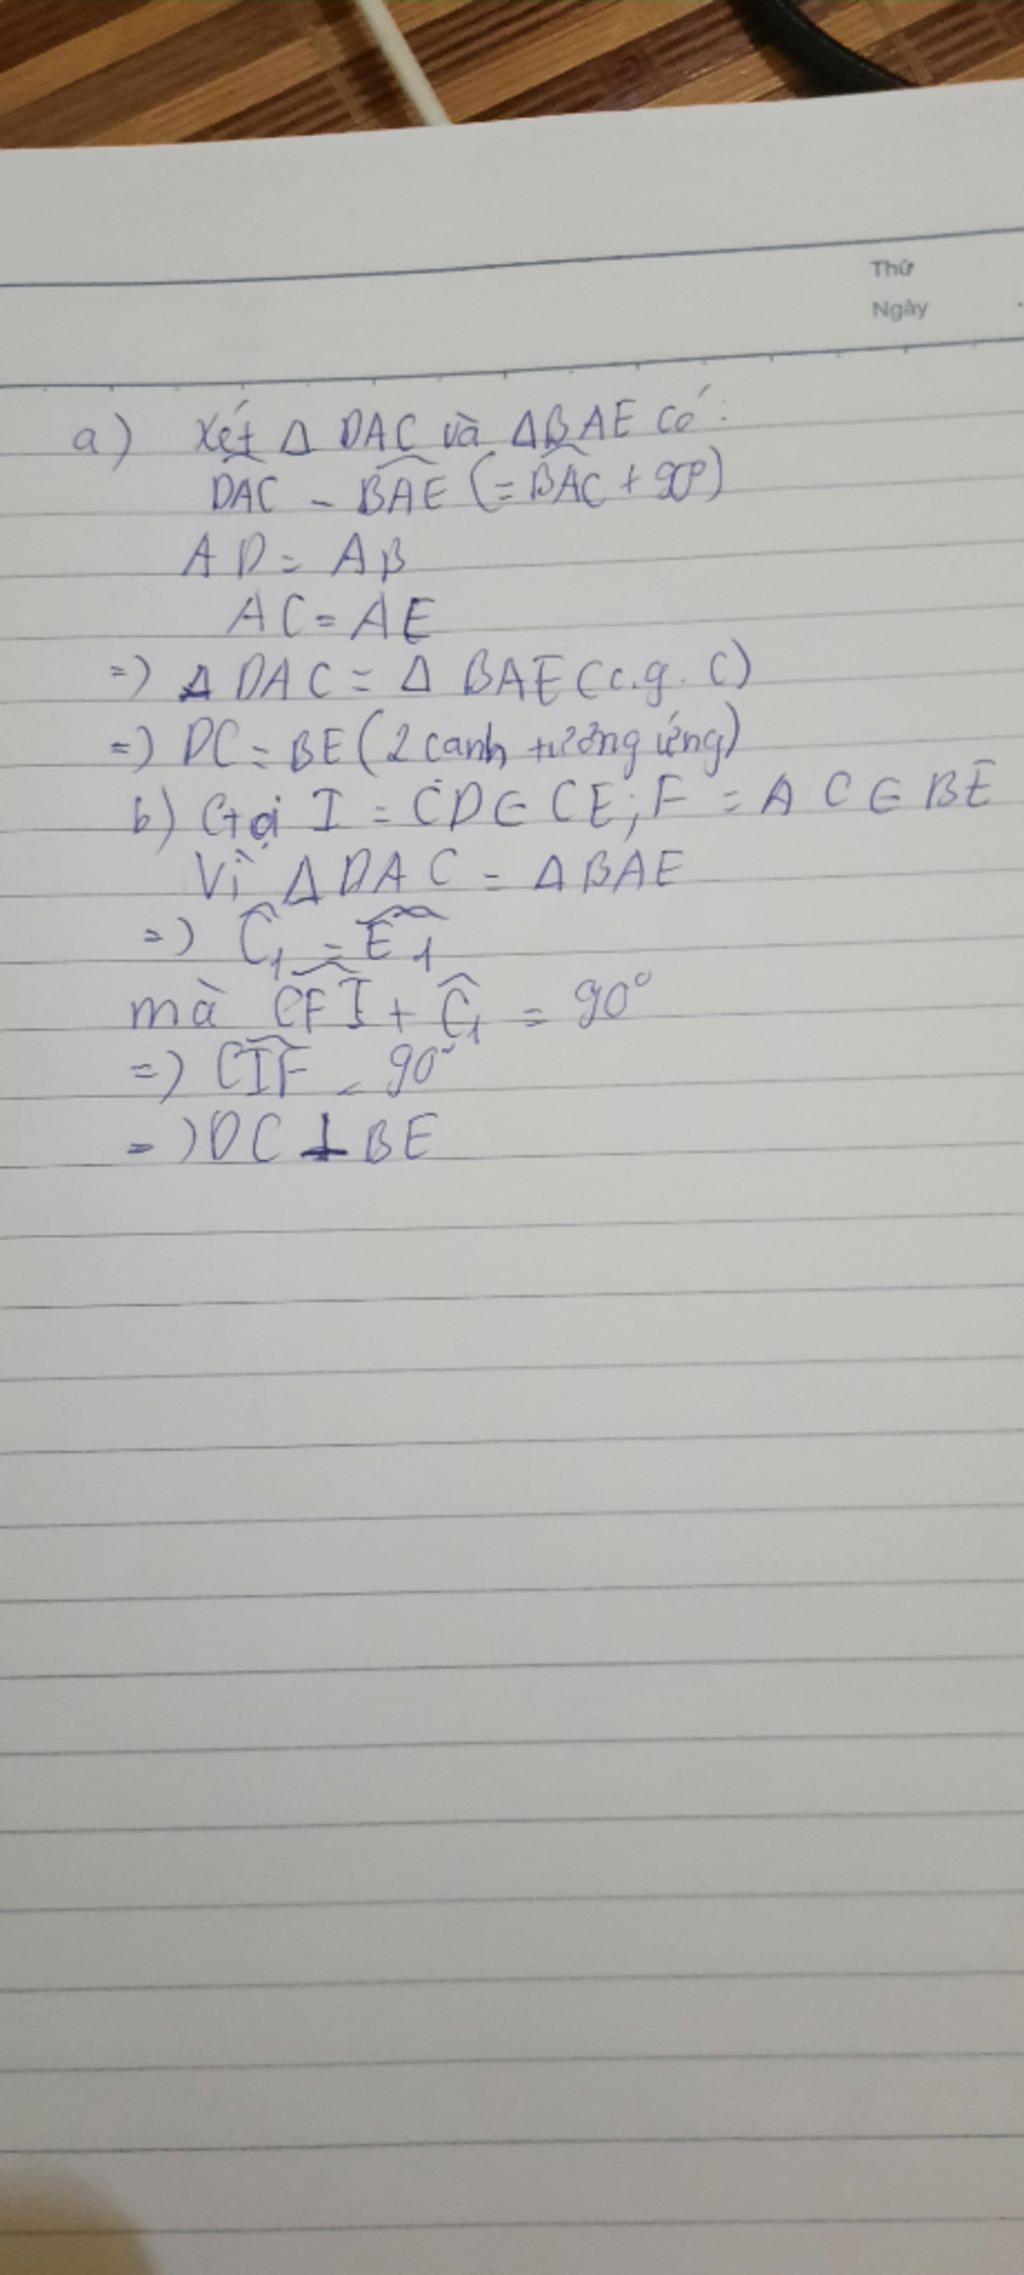 Thứ
Ngày
a) Xét Δ DAC và ΔBAE có:
DAC = BAE (= BAC + 90°)
AD = AB
AC = AE
=) Δ DAC = Δ BAE (c.g.c)
=) DC = BE (2 canh tương ứng)
b) Gọi I = CD ∈ CE; F = AC ∈ BE
Vì Δ DAC = Δ BAE
=) Ĉ₁ = Ê₁
mà CFI + Ĉ₁ = 90°
=) CIF = 90°
=) DC ⊥ BE